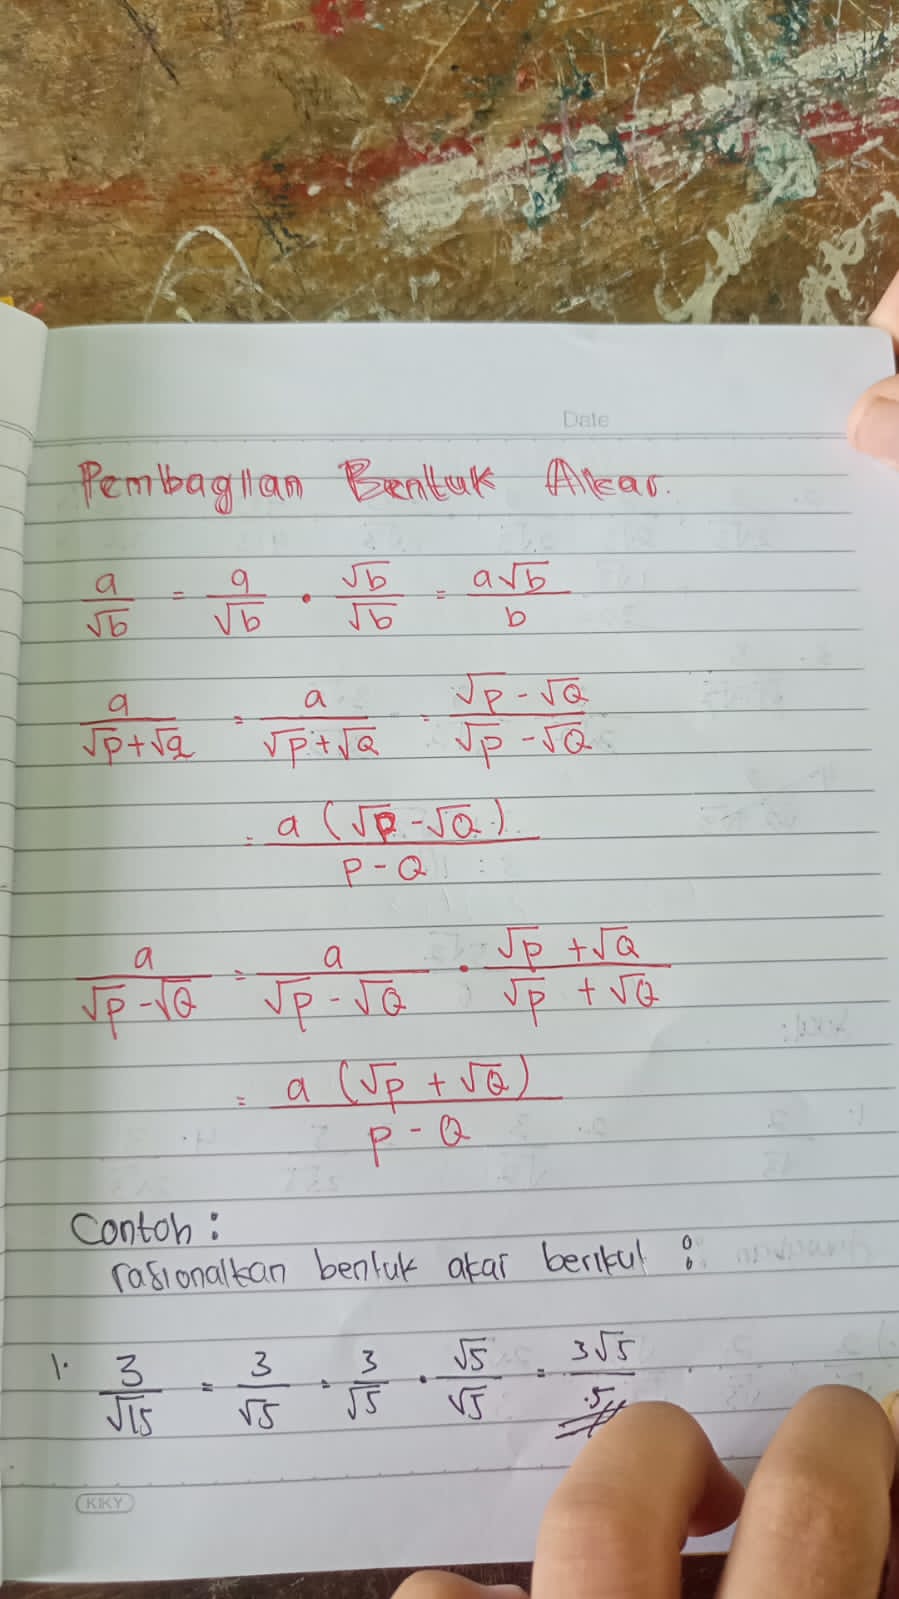 Date
Pembagian Bentuk Akar.
a/√b = a/√b • √b/√b = a√b/b
a/√p+√q = a/√p+√Q = √p-√Q/√p-√Q
= a(√p-√Q)/p-Q
a/√p-√Q = a/√p-√Q • √p+√Q/√p+√Q
= a(√p+√Q)/p-Q
Contoh :
rasionalkan bentuk akar berikut :
1. 3/√15 = 3/√5 = 3/√5 • √5/√5 = 3√5/5
KIKY